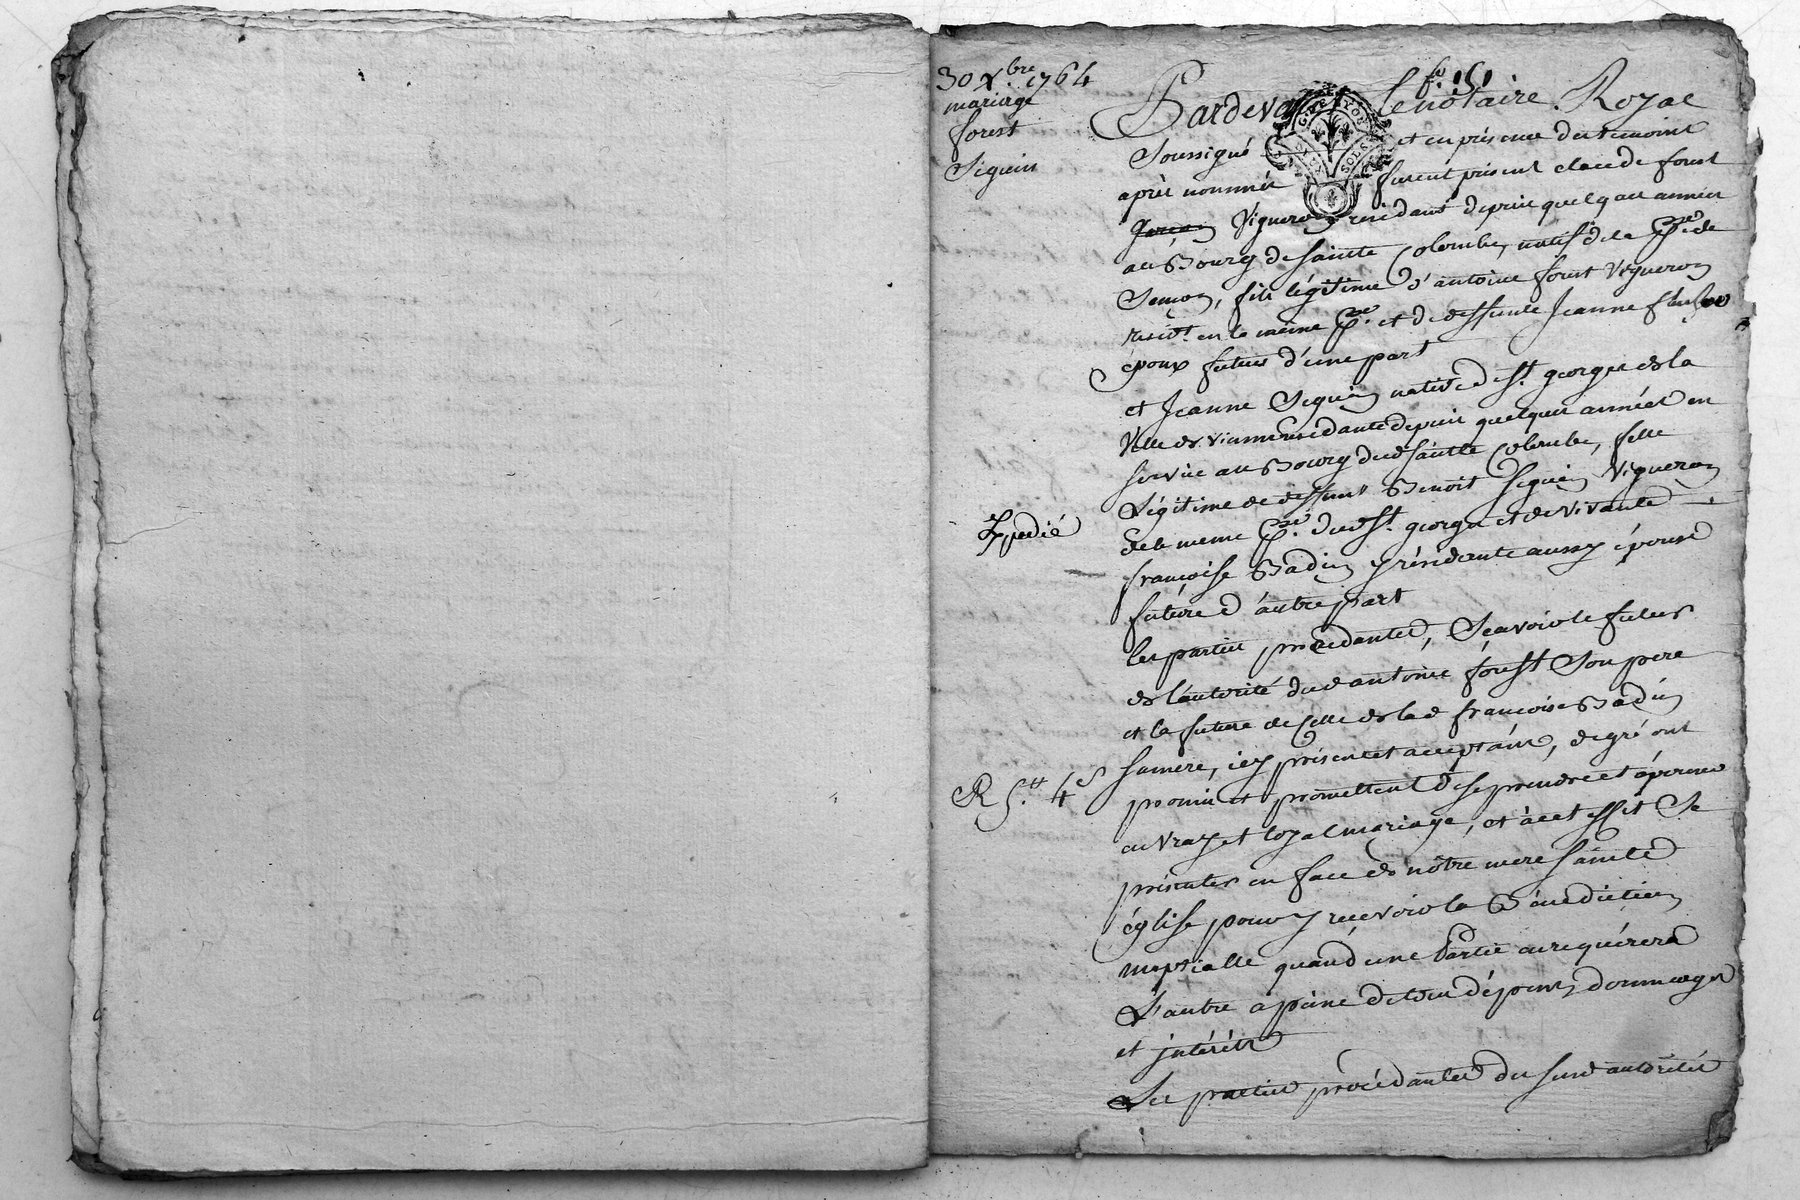 30 Xbre 1764
mariage
forest
Seguin
fo 151
Pardevant le notaire Royal
Soussigné et en présence des temoins
après nommés furent présent claude forest
garçon Vigneron residant depuis quelques années
au Bourg de sainte Colombe, natif de la Psse de
Semon, fils légitime d'antoine forest Vigneron
residt. en la meme Psse. et de deffunte Jeanne
époux futur d'une part
et Jeanne Seguin native de st. george de la
Ville de vienne residante depuis quelques années en
service au Bourg dud sainte Colombe, fille
Légitime de deffunt Benoit Seguin Vigneron
de la meme Psse. dud st. george et de vivante
françoise Badin y résidante aussy épouse
future d'autre part
les parties procedantes, Scavoir le futur
de l'autorité dud antoine forest Son père
et la future de celle de lad françoise Badin
sa mere, icy présent et acceptants, de gré ont
promis et promettent de se prendre et épouser
en vray et loyal mariage, et à cet effet Se
présenter en face de nôtre mere sainte
église pour y recevoir la Bénédiction
nuptialle quand une Partie en requérera
L'autre a peine de tous dépens, dommages
et intérêts
Les parties procédantes des susd autorités
Expedié
R 5tt 4s